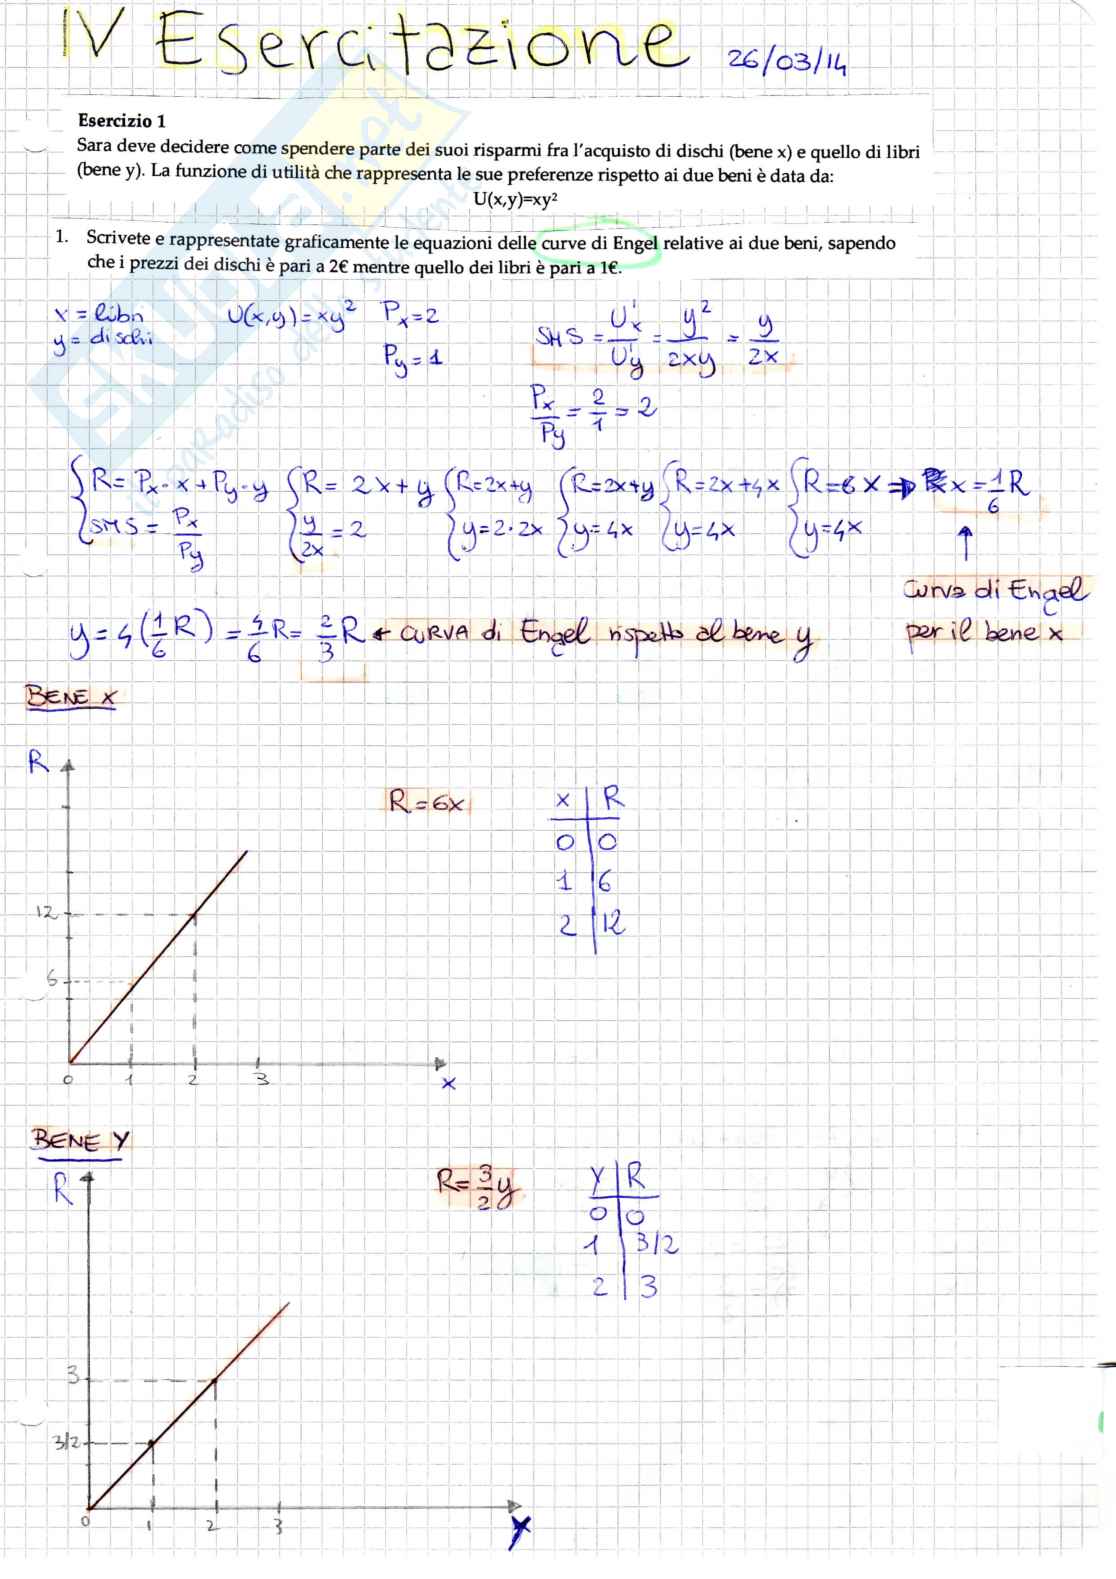 IV Esercitazione 26/03/14
Esercizio 1
Sara deve decidere come spendere parte dei suoi risparmi fra l'acquisto di dischi (bene x) e quello di libri
(bene y). La funzione di utilità che rappresenta le sue preferenze rispetto ai due beni è data da:
U(x,y)=xy²
1. Scrivete e rappresentate graficamente le equazioni delle curve di Engel relative ai due beni, sapendo
che i prezzi dei dischi è pari a 2€ mentre quello dei libri è pari a 1€.
x = libri U(x,y)=xy² Px=2 SMS = U'x/U'y = y²/2xy = y/2x
y = dischi Py=1
Px/Py = 2/1 = 2
{R= Px·x+Py·y {R= 2x+y {R=2x+y {R=2x+y {R=2x+4x {R=6x ⇒ x=1/6 R
{SMS = Px/Py {y/2x = 2 {y=2·2x {y=4x {y=4x {y=4x ↑
Curva di Engel
per il bene x
y=4(1/6 R) = 4/6 R= 2/3 R ← CURVA di Engel rispetto al bene y
BENE X
R
R=6x
x R
0 0
1 6
2 12
12
6
0 1 2 3
x
BENE Y
R
R=3/2 y
Y R
0 0
1 3/2
2 3
3
3/2
0 1 2 3
Y